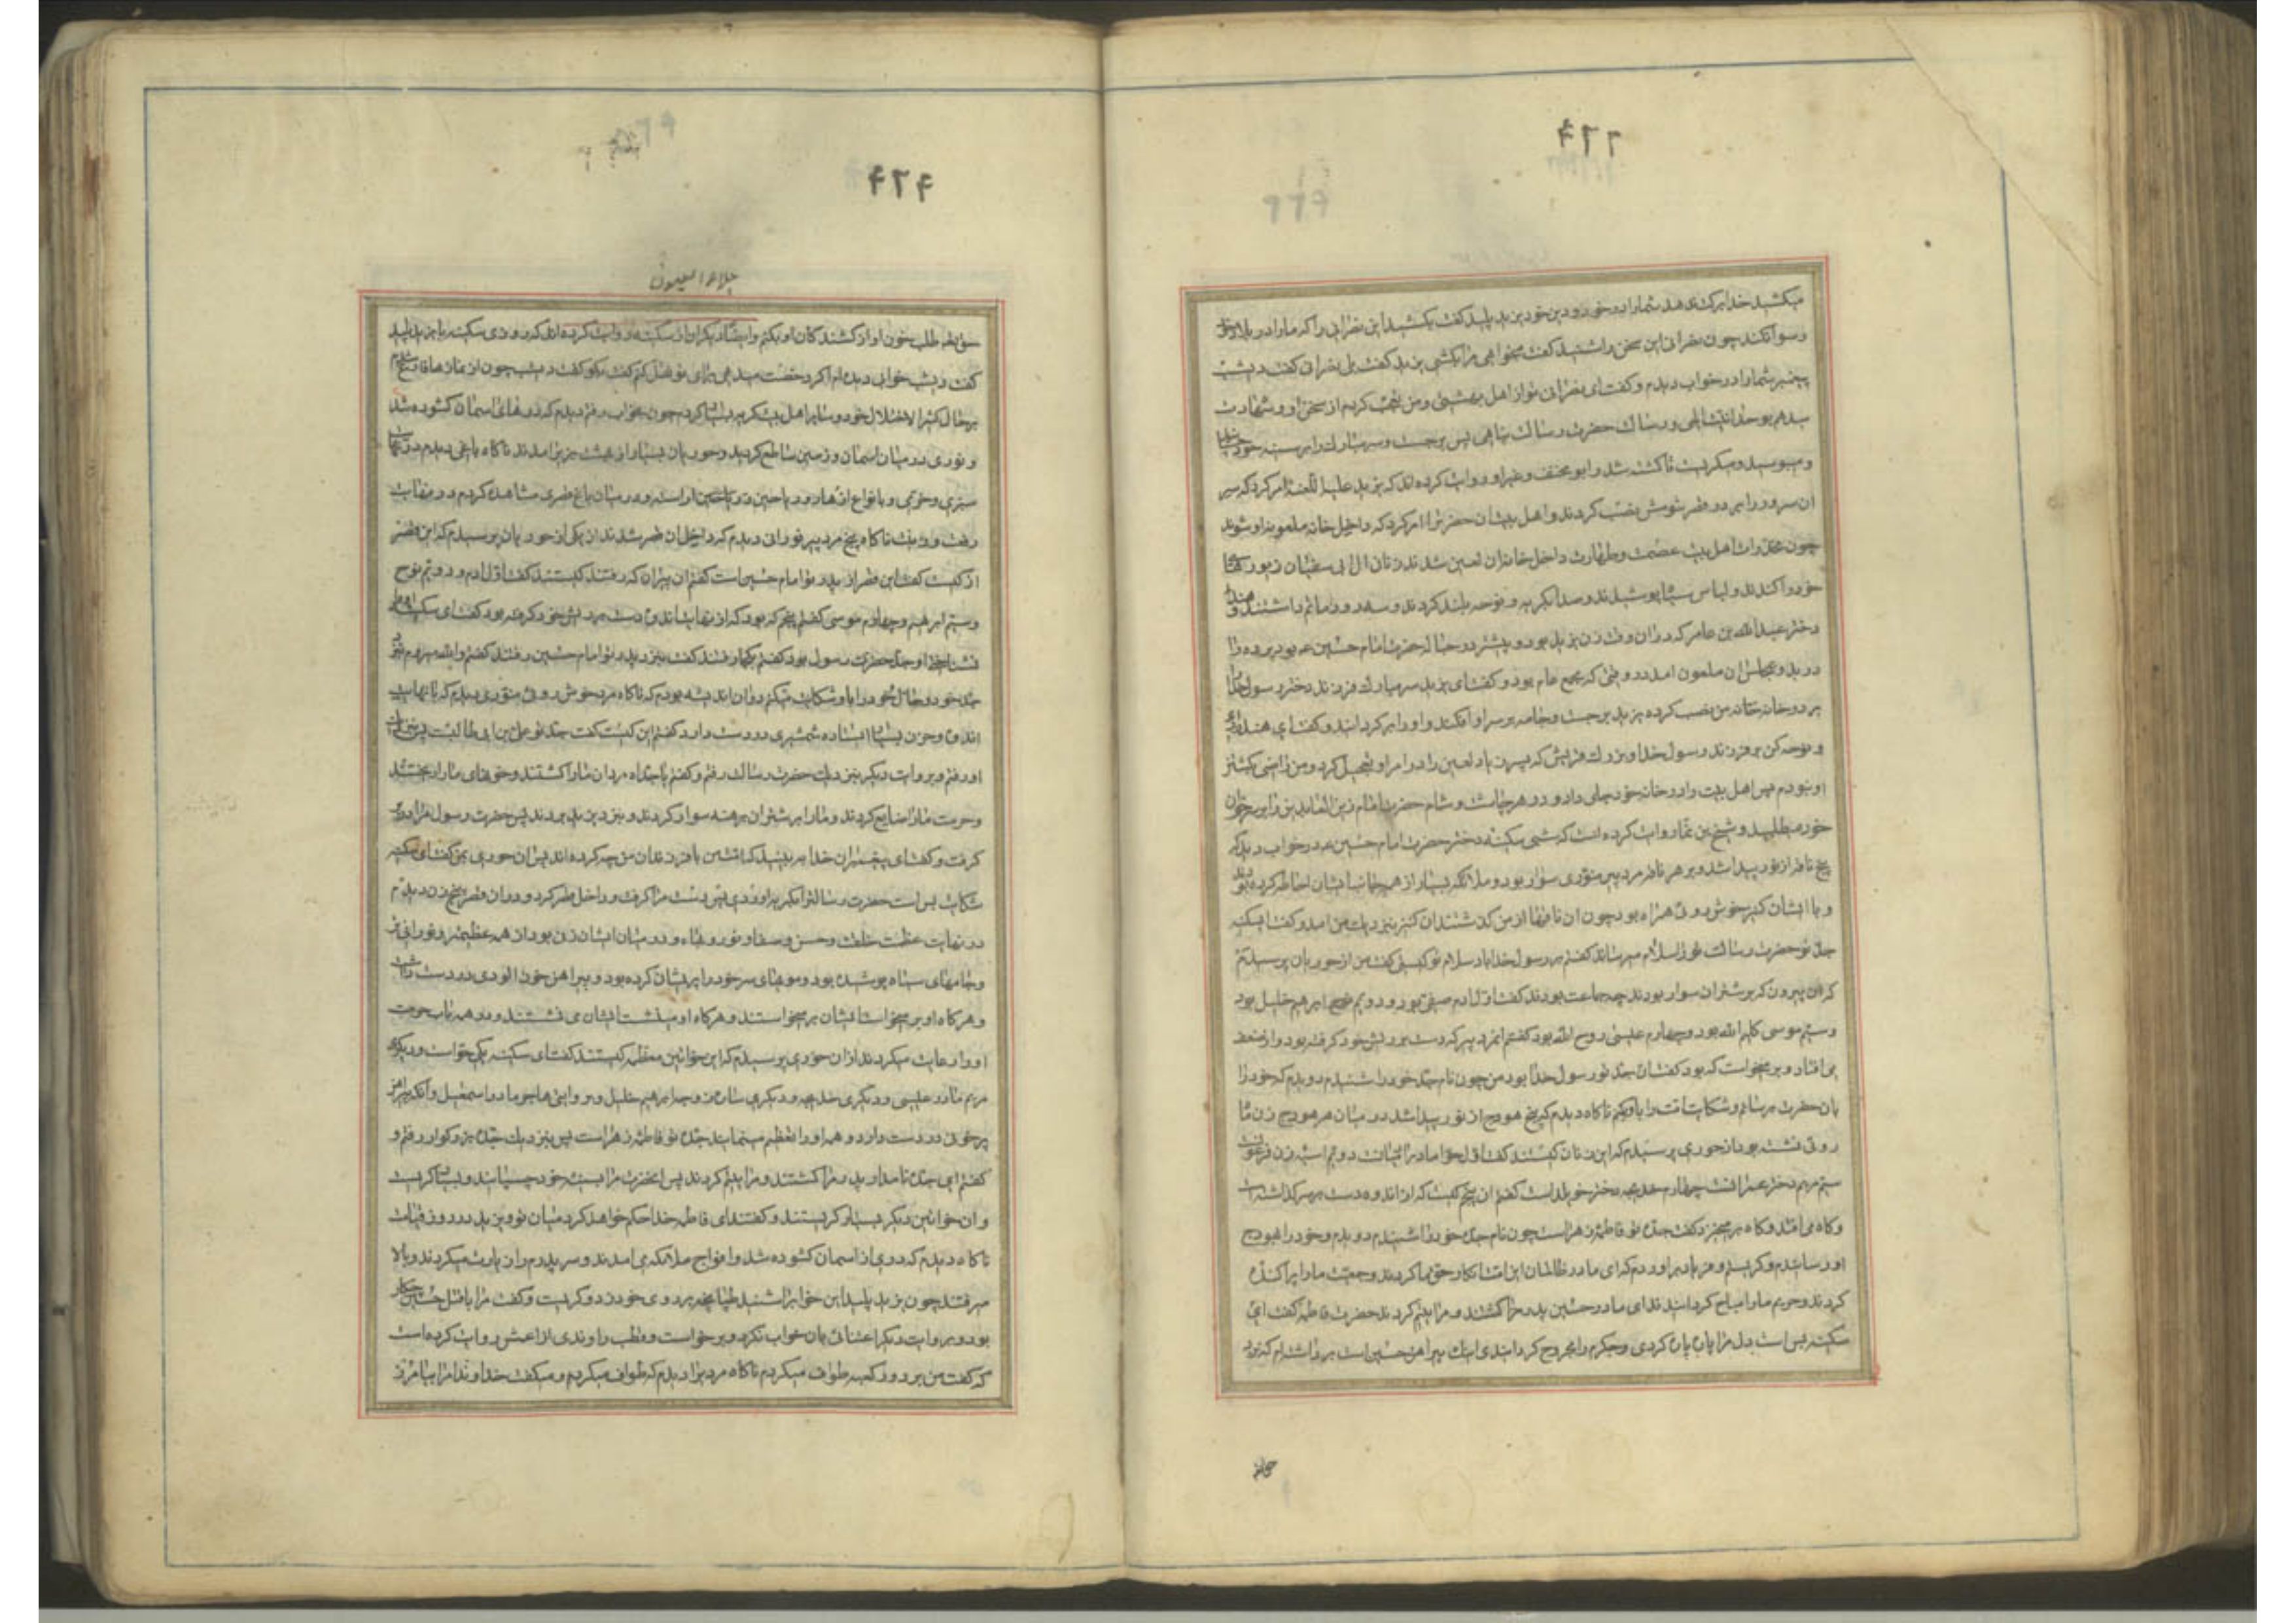 میکشید خدا برکت ندهد شما را در خود و دین خود یزید پلید گفت بکشید این نصرانی را که ما را در بلاد خود
رسوا نکند چون نصرانی این سخن را شنید گفت میخواهی مرا بکشی یزید گفت بلی نصرانی گفت دیشب
پیغمبر شما را در خواب دیدم و گفت ای نصرانی تو از اهل بهشتی و من تعجب کردم از سخن او و شهادت
میدهم بوحدانیت الهی و رسالت حضرت رسالت پناهی پس برجست و سر مبارک را بر سینه خود چسبانید
و میبوسید و میگریست تا کشته شد و ابو مخنف و غیر او روایت کرده‌اند که یزید علیه اللعنه امر کرد که سر
آن سرور را بر در قصر شومش نصب کردند و اهل بیت آن حضرت را امر کرد که داخل خانه ملعونه او شوند
چون مخدرات اهل بیت عصمت و طهارت داخل خانه آن لعین شدند زنان آل ابی سفیان زیور
خود را کندند و لباس سیاه پوشیدند و صدا بگریه و نوحه بلند کردند و سه روز ماتم داشتند و هند
دختر عبدالله بن عامر که در آن وقت زن یزید بود و پیشتر در حباله حضرت امام حسین ع بود پرده را
درید و بمجلس آن ملعون آمد در وقتی که مجمع عام بود و گفت ای یزید سر مبارک فرزند دختر رسول خدا را
بر در خانه من نصب کرده یزید برجست و جامه بر سر او افکند و او را برگردانید و گفت ای هند
و نوحه کن بر فرزند رسول خدا و بزرگ قریش که پسر زیاد لعین را در امر او تعجیل کرد و من راضی بکشتن
او نبودم پس اهل بیت را در خانه خود جای داد و در هر چاشت و شام حضرت امام زین العابدین را بر سر خوان
خود میطلبید و شیخ بن نما روایت کرده است که شبی سکینه دختر حضرت امام حسین ع در خواب دید که
پنج ناقه از نور پیدا شد و بر هر ناقه مرد پیر منوری سوار بود و ملائکه بسیار از همه جانب ایشان احاطه کرده بودند
و با ایشان کنیز خوش روئی همراه بود چون آن ناقها از من گذشتند آن کنیز نزدیک من آمد و گفت ای سکینه
جد تو حضرت رسالت تو را سلام میرساند گفتم بر رسول خدا باد سلام تو کیستی گفت من از حوریان پرسیدم
که آن پیرون که بر شتران سوار بودند چه جماعت بودند گفت اول آدم صفی بود و دویم ابرهیم خلیل بود
و سیم موسی کلیم الله بود و چهارم عیسی روح الله بود گفتم آنمرد پیر که دست بر ریش خود گرفته بود و از ضعف
می افتاد و بر میخواست که بود گفت آن جد تو رسول خدا بود من چون نام جد خود را شنیدم دویدم که خود را
بآن حضرت برسانم و شکایت امت را باو بکنم ناگاه دیدم که پنج هودج از نور پیدا شد در میان هر هودج زن
روئی نشسته بود از حوری پرسیدم که این زنان کیستند گفت اول حوا مادر آدمیانست دویم آسیه زن فرعون
سیم مریم دختر عمرانست چهارم خدیجه دختر خویلد است گفتم آن پنجم کیست که از اندوه دست بر سر گذاشته است
و گاه می افتد و گاه بر میخیزد گفت جده تو فاطمه زهراست چون نام جده خود را شنیدم دویدم و خود را بهودج
او رسانیدم و گریستم و فریاد براوردم که ای مادر ظالمان این امت انکار حق ما کردند و جمعیت ما را پراکنده
کردند و حریم ما را مباح گردانیدند ای مادر حسین پدر مرا کشتند و مرا یتیم کردند حضرت فاطمه گفت ای
سکینه بس است دل مرا پاره پاره کردی و جگرم را مجروح گردانیدی اینک پیراهن حسین است برداشته‌ام که نزد
۴۶۴
جلاء العیون
حق تعالی طلب خون او از کشندگان او بکنم و ایضا دیگران از سکینه روایت کرده‌اند که روزی سکینه با یزید پلید
گفت دیشب خوابی دیده‌ام اگر رخصت میدهی برای تو نقل کنم گفت بگو گفت دیشب چون از نمازها فارغ شدم
بر حال کثیر الاختلال خود و سایر اهل بیت گریه بسیار کردم چون بخواب رفتم دیدم که درهای آسمان گشوده شد
و نوری در میان آسمان و زمین ساطع گردید و حوریان بسیار از بهشت بزیر آمدند ناگاه باغی دیدم در نهایت
سبزی و خرمی و بانواع ازهار و ریاحین آراسته و در میان باغ قصری مشاهده کردم در نهایت
رفعت و زینت ناگاه پنج مرد پیر نورانی دیدم که داخل آن قصر شدند از یکی از حوریان پرسیدم که این قصر
از کیست گفت این قصر از پدر تو امام حسین است گفتم آن پیران که رفتند کیستند گفت اول آدم و دویم نوح
و سیم ابرهیم و چهارم موسی گفتم پنجم که بود که از نهایت اندوه دست بر ریش خود گرفته بود گفت ای سکینه او را
نشناختی او جدت حضرت رسول بود گفتم بکجا رفتند گفت بنزد پدر تو امام حسین رفتند گفتم والله میروم نزد
جد خود و حال خود را باو شکایت میکنم در آن اندیشه بودم که ناگاه مرد خوش روئی منوری دیدم که با نهایت
اندوه و حزن بسیار ایستاده شمشیری در دست دارد گفتم این کیست گفت جد تو علی بن ابی طالبست پس بنزدیک
او رفتم و بروایت دیگر بنزدیک حضرت رسالت رفتم و گفتم یا جداه مردان ما را کشتند و خونهای ما را ریختند
و حرمت ما را ضایع کردند و ما را بر شتران برهنه سوار کردند و بنزد یزید بردند پس حضرت رسول مرا در بر
گرفت و گفت ای پیغمبران خدا ببینید که امت من با فرزندان من چه کرده‌اند پس آن حوری بمن گفت ای سکینه
شکایت بس است حضرت رسالت را بگریه آوردی پس دست مرا گرفت و داخل قصر کرد و در آن قصر پنج زن دیدم
در نهایت عظمت خلقت و حسن و صفا و نور و بهاء و در میان ایشان زنی بود از همه عظیمتر و نورانی تر
و جامهای سیاه پوشیده بود و موهای سر خود را پریشان کرده بود و پیراهن خون آلودی در دست داشت
و هرگاه او بر میخواست ایشان بر میخواستند و هرگاه او مینشست ایشان می نشستند و در همه باب حرمت
او را رعایت میکردند از آن حوری پرسیدم که این خواتین معظمه کیستند گفت ای سکینه یکی حواست و دیگری
مریم مادر عیسی و دیگری خدیجه و دیگری ساره زوجه ابرهیم خلیل و بروایتی هاجر مادر اسمعیل و آنکه پیراهن
پرخونی در دست دارد و همه او را تعظیم مینمایند جده تو فاطمه زهراست پس بنزدیک جده بزرگوار رفتم و
گفتم ای جده نامدار پدر مرا کشتند و مرا یتیم کردند پس آنحضرت مرا بسینه خود چسبانید و بسیار گریست
و آن خواتین دیگر بسیار گریستند و گفتند ای فاطمه خدا حکم خواهد کرد میان تو و یزید در روز قیامت
ناگاه دیدم که دری از آسمان گشوده شد و افواج ملائکه می آمدند و سر پدرم را زیارت میکردند و بالا
میرفتند چون یزید پلید این خواب را شنید طپانچه بر روی خود زد و گریست و گفت مرا با قتل حسین چکار
بود و بروایت دیگر اعتنائی بآن خواب نکرد و برخواست و قطب راوندی از اعمش روایت کرده است
که گفت من بر دور کعبه طواف میکردم ناگاه مردی را دیدم که طواف میکرد و میگفت خداوندا مرا بیامرز